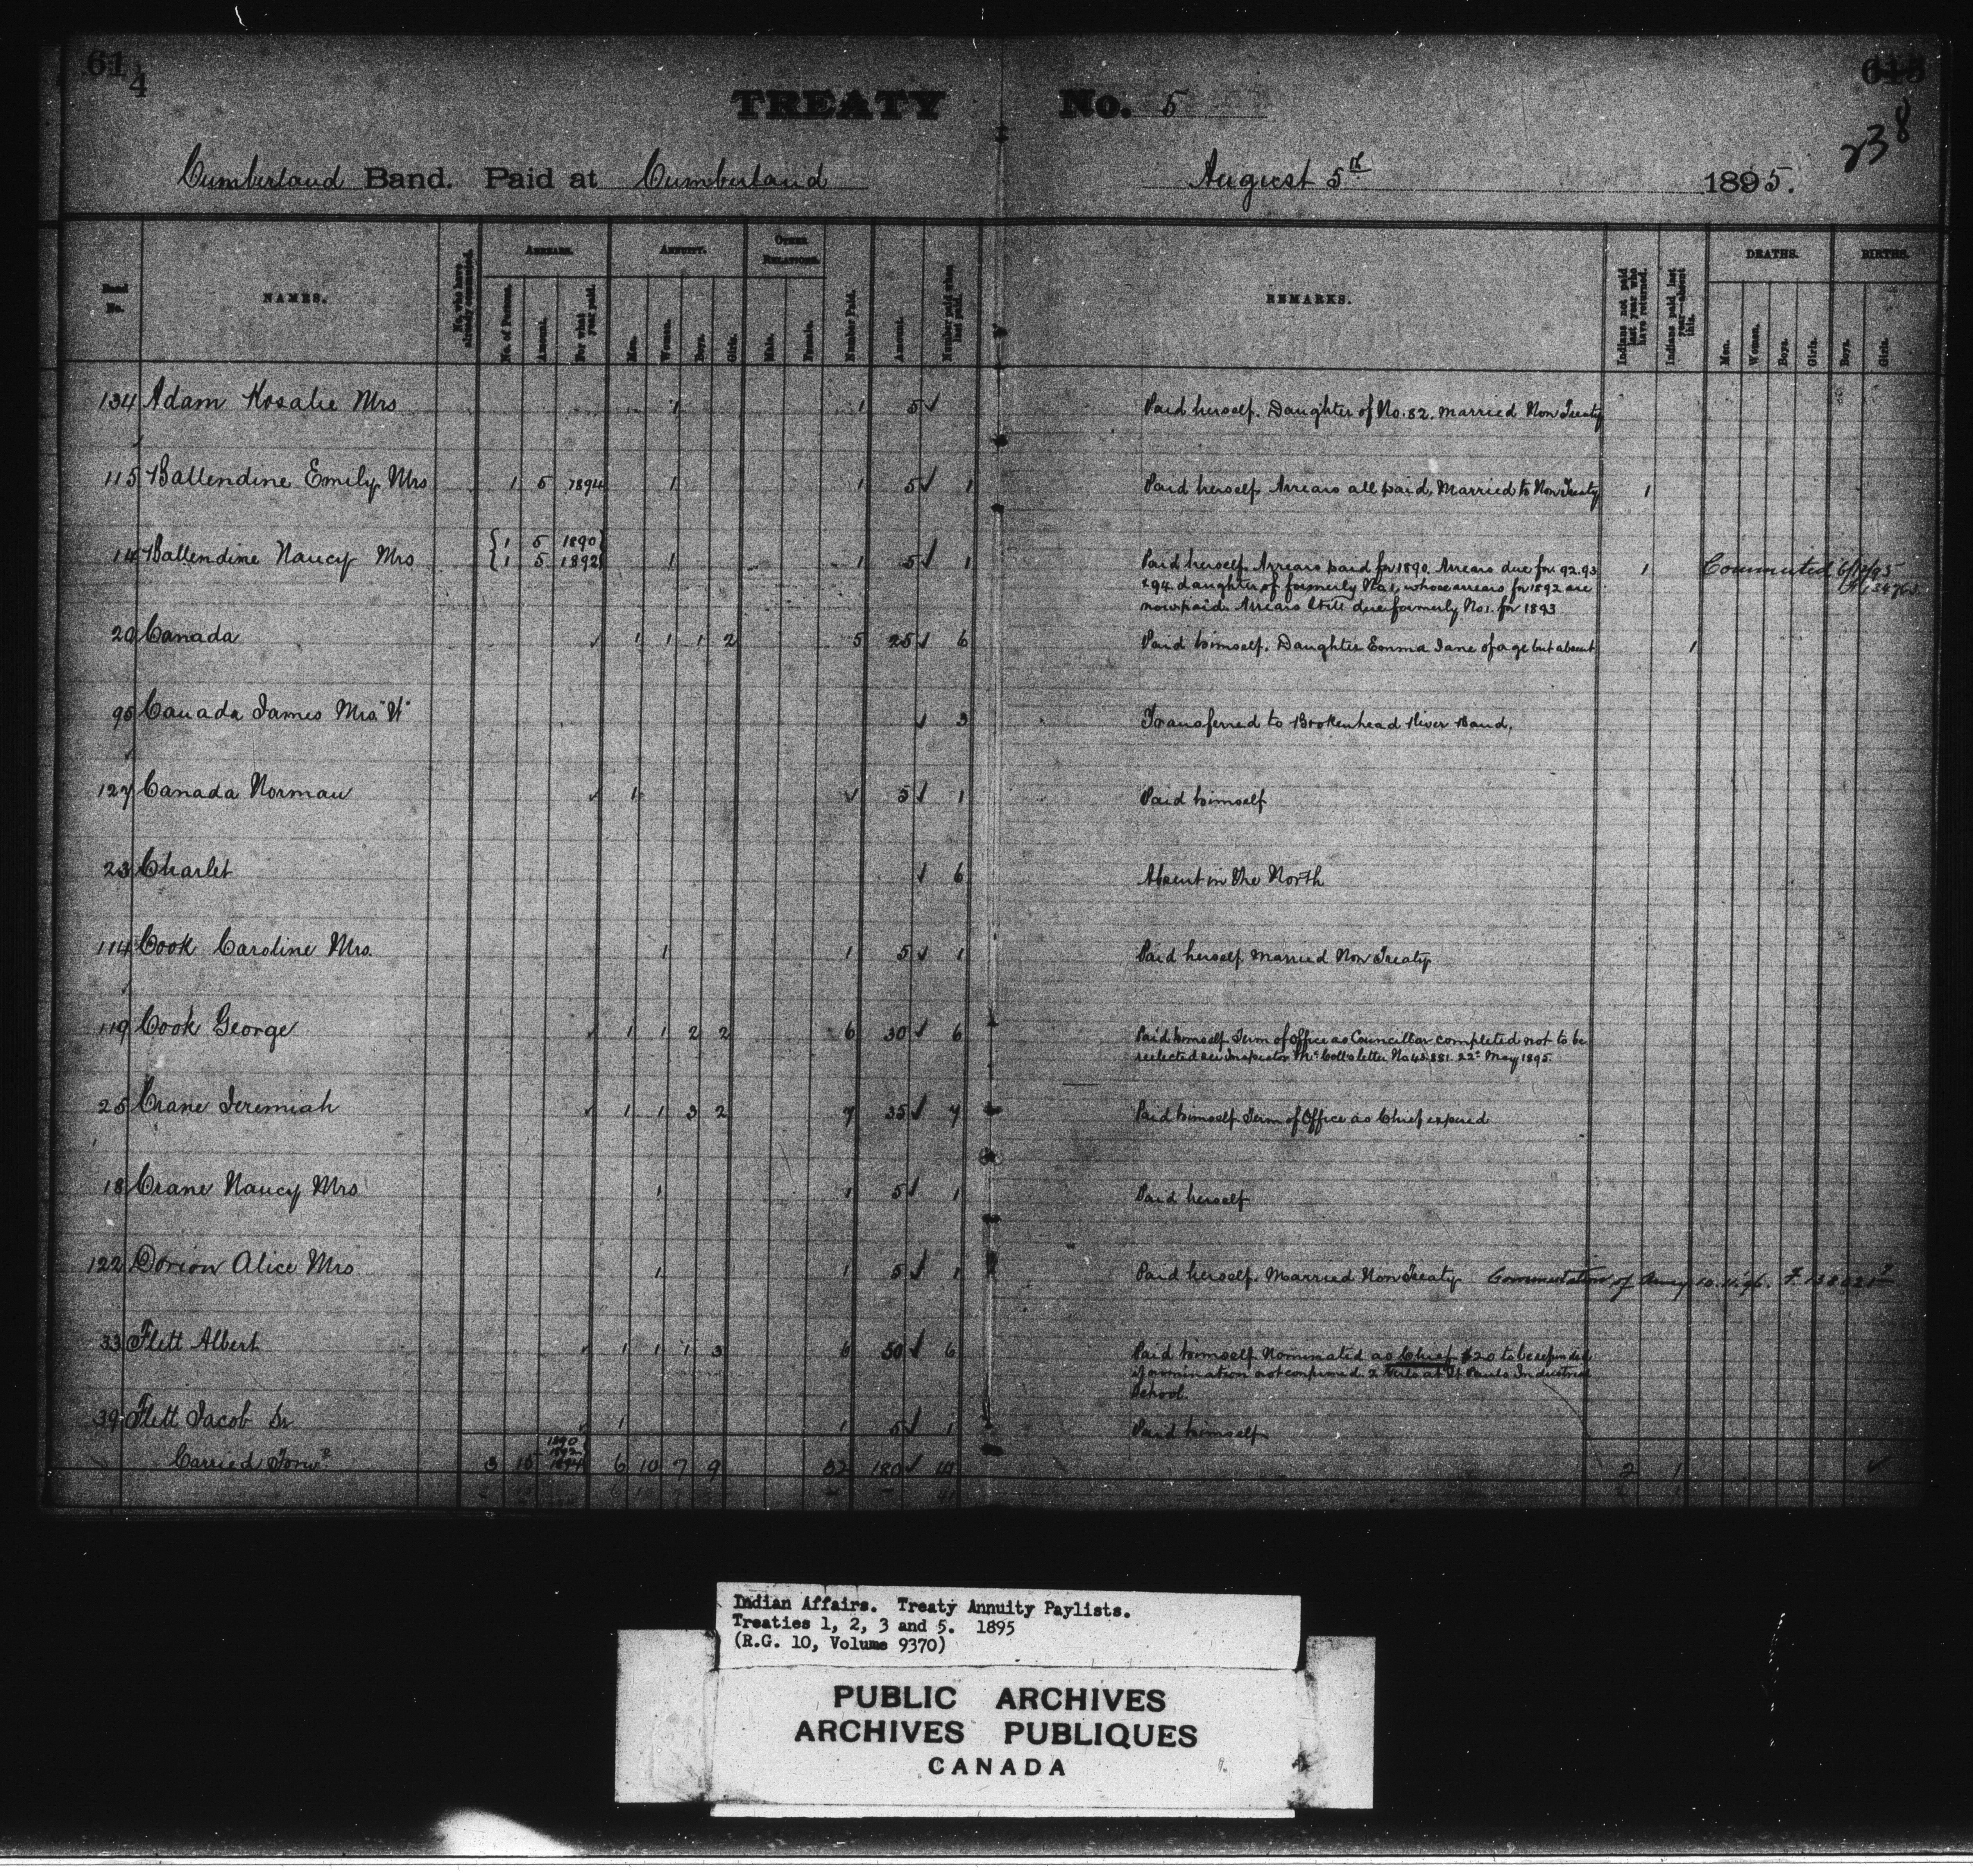 61 4
TREATY No. 5
238
Cumberland Band. Paid at Cumberland August 5th 1895.
Band No. NAMES. No. who have already commuted. ARREARS. No. of Persons. Amount. For what year paid. ANNUITY. Men. Women. Boys. Girls. OTHER RELATIONS. Male. Female. Number Paid. Amount. Number paid when last paid. REMARKS. Indians not paid last year who have returned. Indians paid last year—absent this. DEATHS. Men. Women. Boys. Girls. BIRTHS. Boys. Girls.
134 Adam Rosalie Mrs 1 1 5 ✓ Paid herself. Daughter of No. 82. married Non Treaty
115 Ballendine Emily Mrs 1 5 1894 1 1 5 ✓ 1 Paid herself Arrears all paid, Married to Non Treaty 1
{1 5 1890}
14 Ballendine Nancy Mrs {1 5 1892} 1 1 5 ✓ 1 Paid herself Arrears paid for 1890. Arrears due for 92.93 1 Commuted 6/12/95
& 94. daughter of formerly No 1, whose arrears for 1892 are
now paid. Arrears still due formerly No 1. for 1893
20 Canada ✓ 1 1 1 2 5 25 ✓ 6 Paid himself. Daughter Emma Jane of age but absent 1
95 Canada James Mrs "W" ✓ 3 Transferred to Brokenhead River Band.
127 Canada Norman ✓ 1 ✓ 5 ✓ 1 Paid himself
23 Charlet ✓ 6 Absent in the North
114 Cook Caroline Mrs. 1 1 5 ✓ 1 Paid herself Married Non Treaty
119 Cook George ✓ 1 1 2 2 6 30 ✓ 6 Paid himself Term of Office as Councillor completed not to be
reelected see Inspector McColl's letter No 42.881. 22d May 1895
25 Crane Jeremiah ✓ 1 1 3 2 7 35 ✓ 7 Paid himself Term of Office as Chief expired
18 Crane Nancy Mrs 1 1 5 ✓ 1 Paid herself
122 Dorion Alice Mrs 1 1 5 ✓ 1 Paid herself. Married Non Treaty Commutation of Anny 10.11.96.
33 Flett Albert ✓ 1 1 1 3 6 50 ✓ 6 Paid himself Nominated as Chief $20 to be refunded
if nomination not confirmed. 2 Girls at St Pauls Industrial
School.
39 Flett Jacob Sr ✓ 1 1 5 ✓ 1 Paid himself
1890
1892
Carried Forwd 3 15 1894 6 10 7 9 32 180 ✓ 2 1 ✓
Indian Affairs. Treaty Annuity Paylists.
Treaties 1, 2, 3 and 5. 1895
(R.G. 10, Volume 9370)
PUBLIC ARCHIVES
ARCHIVES PUBLIQUES
CANADA